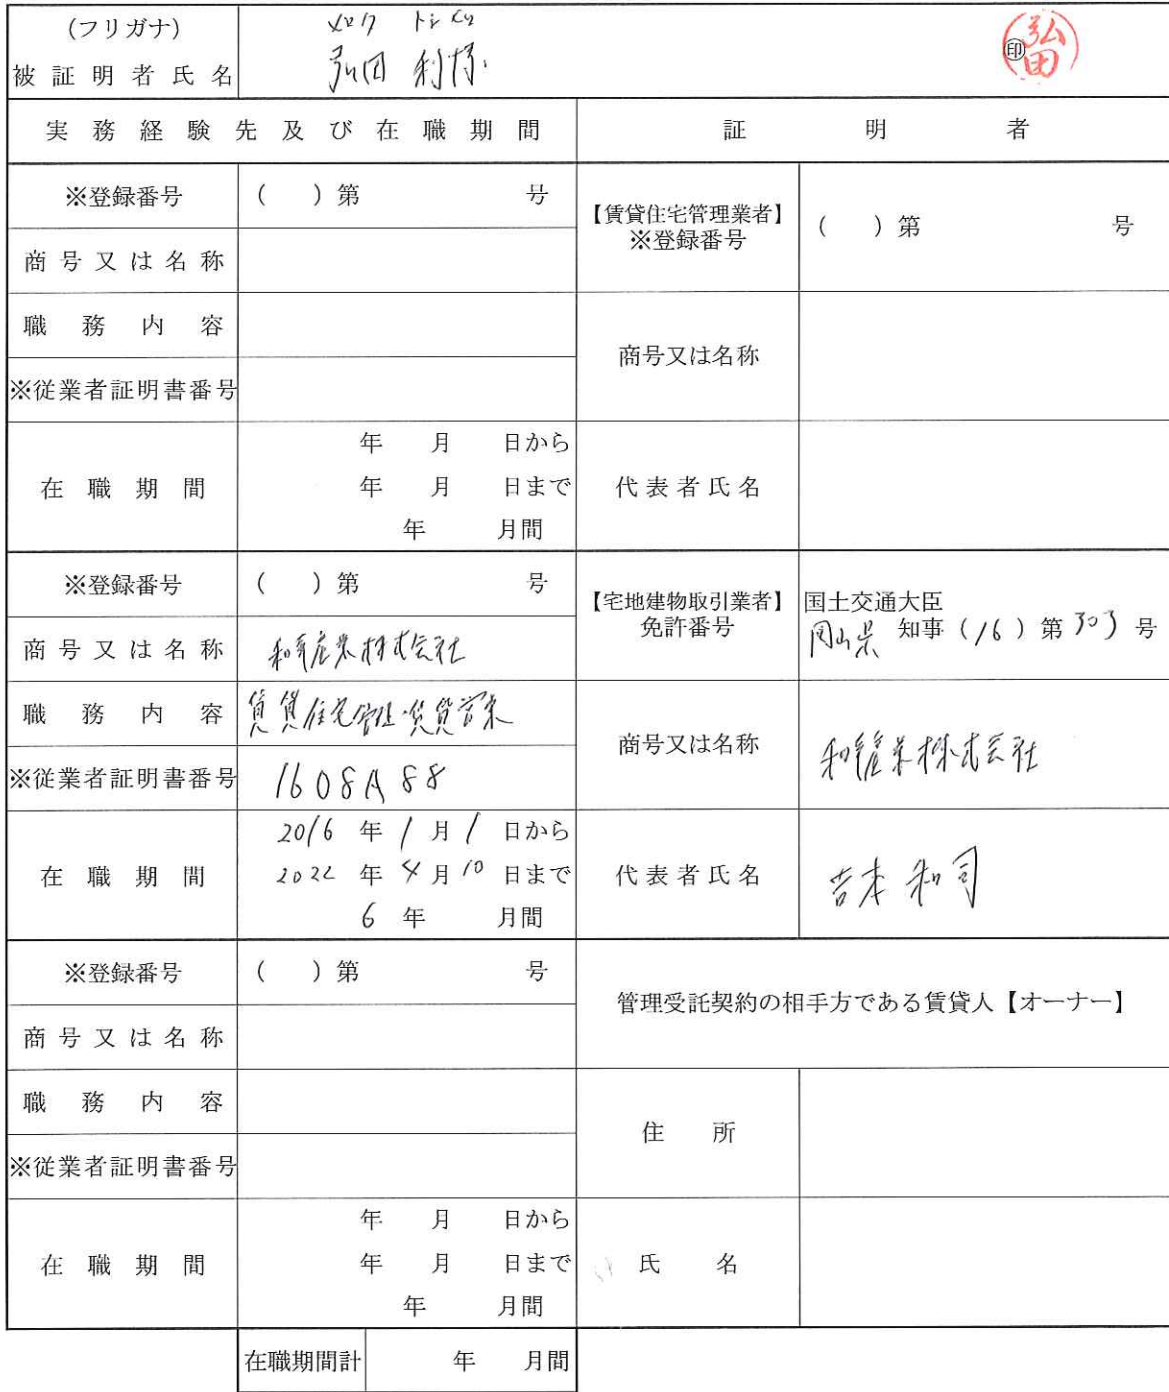 (フリガナ)
被証明者氏名
弘田
印
弘田
実務経験先及び在職期間
証明者
※登録番号 ( )第 号
商号又は名称
職務内容
※従業者証明書番号
在職期間
年 月 日から
年 月 日まで
年 月間
【賃貸住宅管理業者】
※登録番号
( )第 号
商号又は名称
代表者氏名
※登録番号 ( )第 号
商号又は名称 産業株式会社
職務内容 賃貸住宅管理・賃貸営業
※従業者証明書番号 1608A88
在職期間
2016 年 1 月 1 日から
2022 年 4 月 10 日まで
6 年 月間
【宅地建物取引業者】
免許番号
国土交通大臣
岡山県 知事 (16) 第 303 号
商号又は名称 産業株式会社
代表者氏名 吉本 和司
※登録番号 ( )第 号
商号又は名称
職務内容
※従業者証明書番号
在職期間
年 月 日から
年 月 日まで
年 月間
管理受託契約の相手方である賃貸人【オーナー】
住所
氏名
在職期間計 年 月間